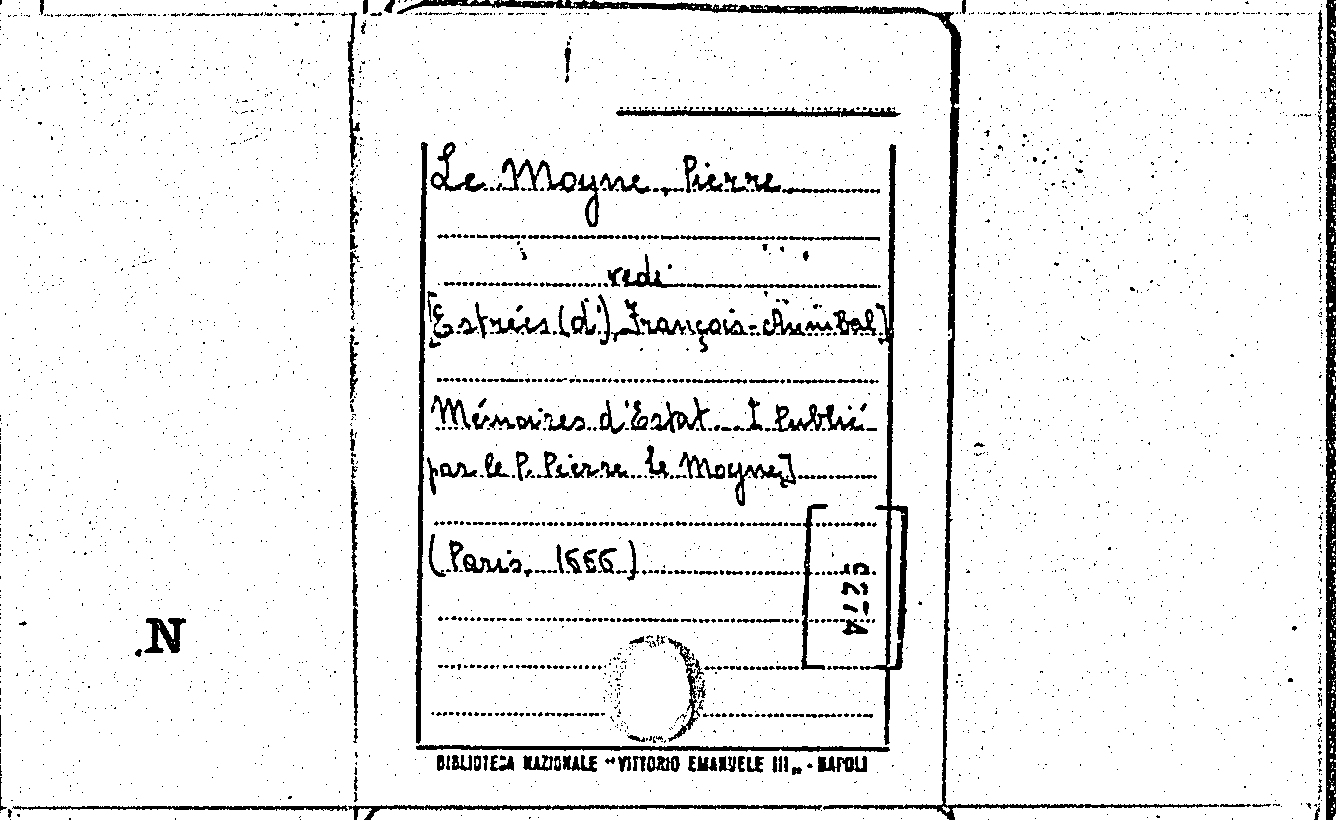 Le Moyne, Pierre
vedi
[Estrées (d'), François-Annibal]
Mémoires d'Estat... [Publié
par le P. Pierre Le Moyne]
(Paris, 1666)
5274
N
BIBLIOTECA NAZIONALE "VITTORIO EMANUELE III„ - NAPOLI